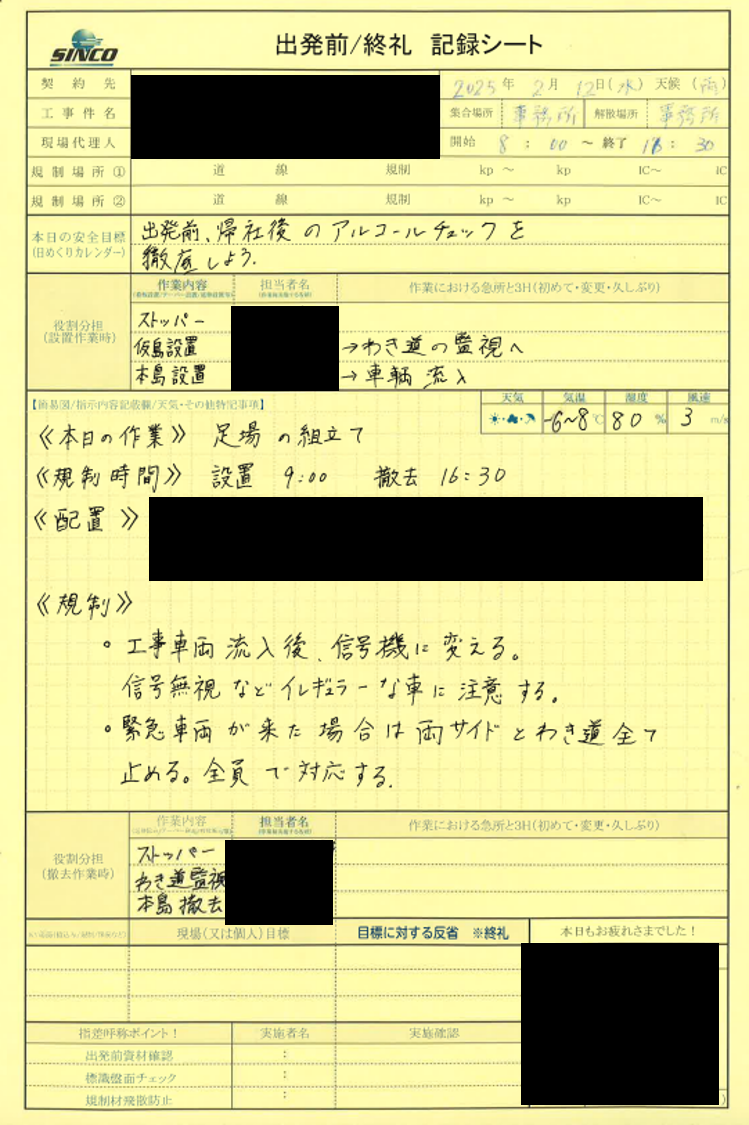 SINCO
出発前/終礼 記録シート
契約先 2025年 2月 12日(水) 天候(雨)
工事件名 集合場所 事務所 解散場所 事務所
現場代理人 開始 8:00 ~ 終了 16:30
規制場所① 道 線 規制 kp ~ kp IC~ IC
規制場所② 道 線 規制 kp ~ kp IC~ IC
本日の安全目標
(日めくりカレンダー)
出発前、帰社後のアルコールチェックを
徹底しよう.
役割分担
(設置作業時)
作業内容 担当者名 作業における急所と3H(初めて・変更・久しぶり)
ストッパー
仮島設置 →わき道の監視へ
本島設置 →車輌流入
【簡易図/指示内容記載欄/天気・その他特記事項】
天気 気温 湿度 風速
-6~8℃ 80% 3 m/s
《本日の作業》 足場の組立て
《規制時間》 設置 9:00 撤去 16:30
《配置》
《規制》
。工事車両流入後、信号機に変える。
信号無視などイレギュラーな車に注意する。
。緊急車両が来た場合は両サイドとわき道全て
止める。全員で対応する.
役割分担
(撤去作業時)
作業内容 担当者名 作業における急所と3H(初めて・変更・久しぶり)
ストッパー
わき道監視
本島撤去
現場(又は個人)目標 目標に対する反省 ※終礼 本日もお疲れさまでした!
指差呼称ポイント! 実施者名 実施確認
出発前資材確認 :
標識盤面チェック :
規制材飛散防止 :
)